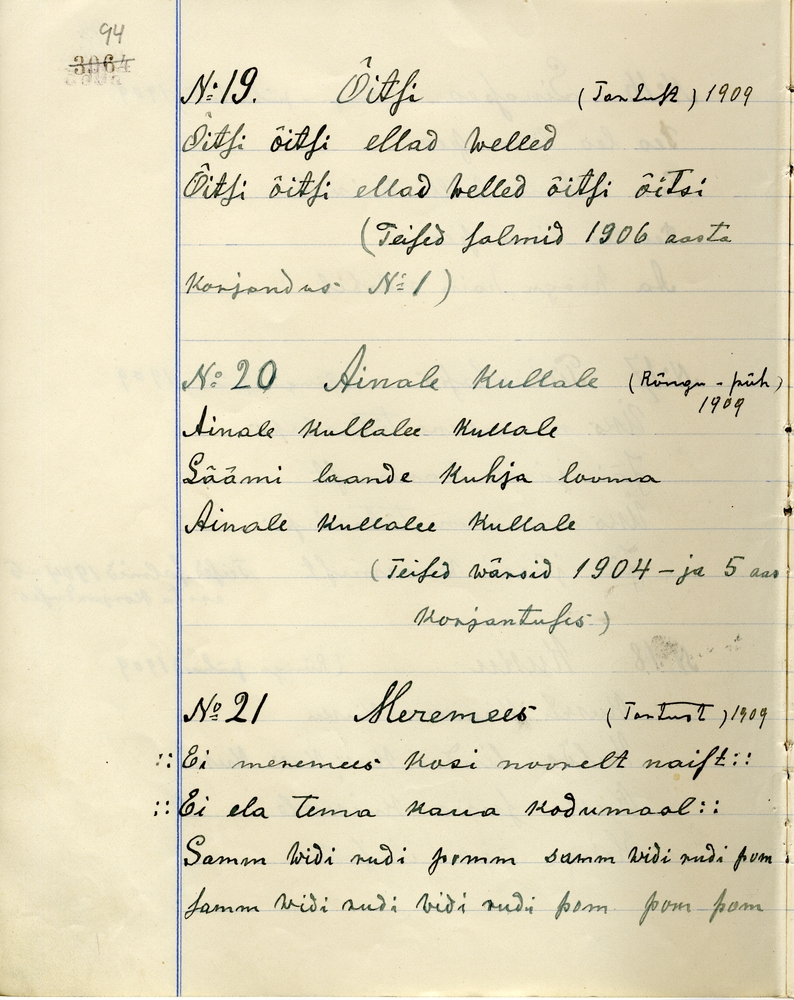 94
3064
No 19. Õitsi (Tartust) 1909
Õitsi õitsi ellad welled
Õitsi õitsi ellad welled õitsi õitsi
(Teised salmid 1906 aasta
korjandus No 1)
No 20 Ainale kullale (Rõngu - püh)
1909
Ainale kullalee kullale
Läämi laande kuhja looma
Ainale kullalee kullale
(Teised wärsid 1904 - ja 5 aas
korjantuses)
No 21 Meremees (Tartust) 1909
:: Ei meremees kosi noorelt naist ::
:: Ei ela tema kaua kodumaal ::
Samm widi rudi pomm samm widi rudi pom
samm widi rudi widi rudi pom pom pom